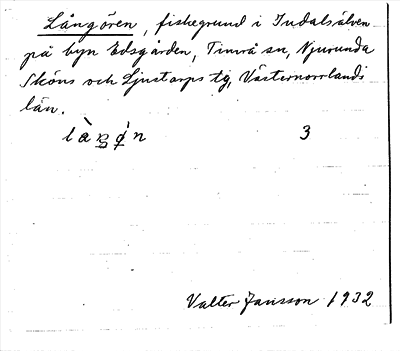 Långören, fiskegrund i Indalsälven
på byn Edsgården, Timrå sn, Njurunda
Sköns och Ljustorps tg, Västernorrlands
län.
3
Valter Jansson 1932